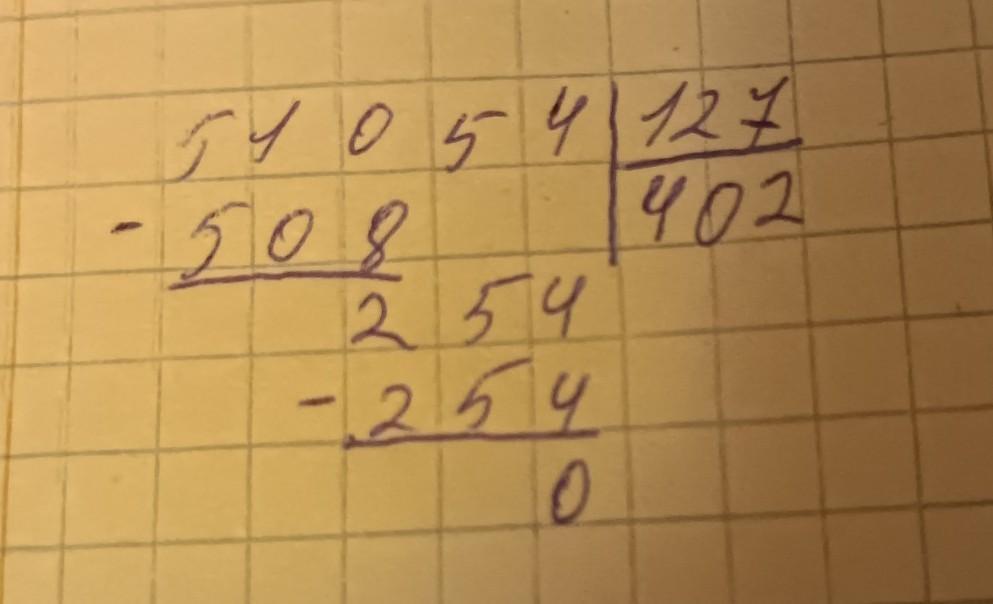 51054 127
- 508 402
254
- 254
0